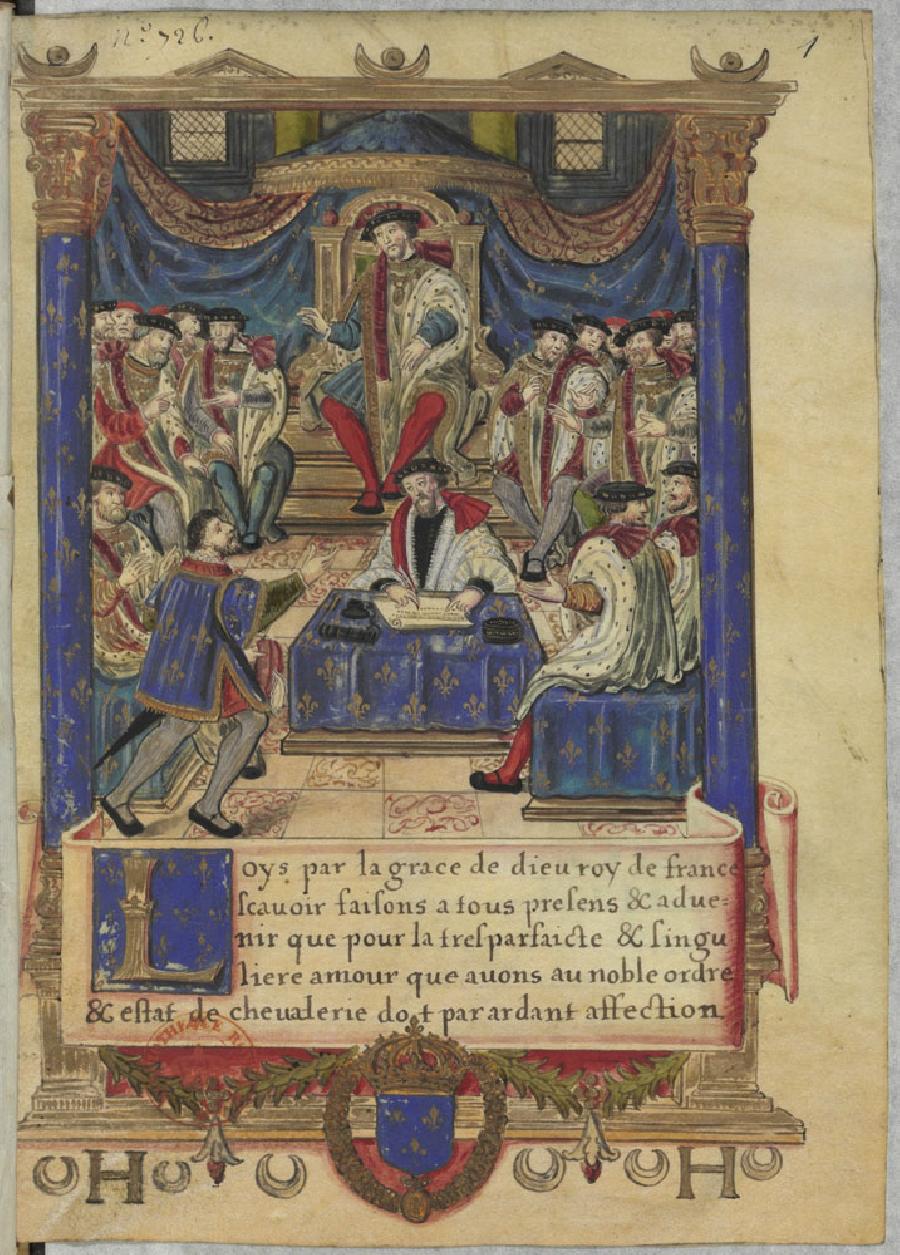 nº 726.
1
Loys par la grace de dieu roy de france
scauoir faisons a tous presens & adue=
nir que pour la tresparfaicte & singu
liere amour que auons au noble ordre
& estat de cheualerie dot par ardant affection
H
H